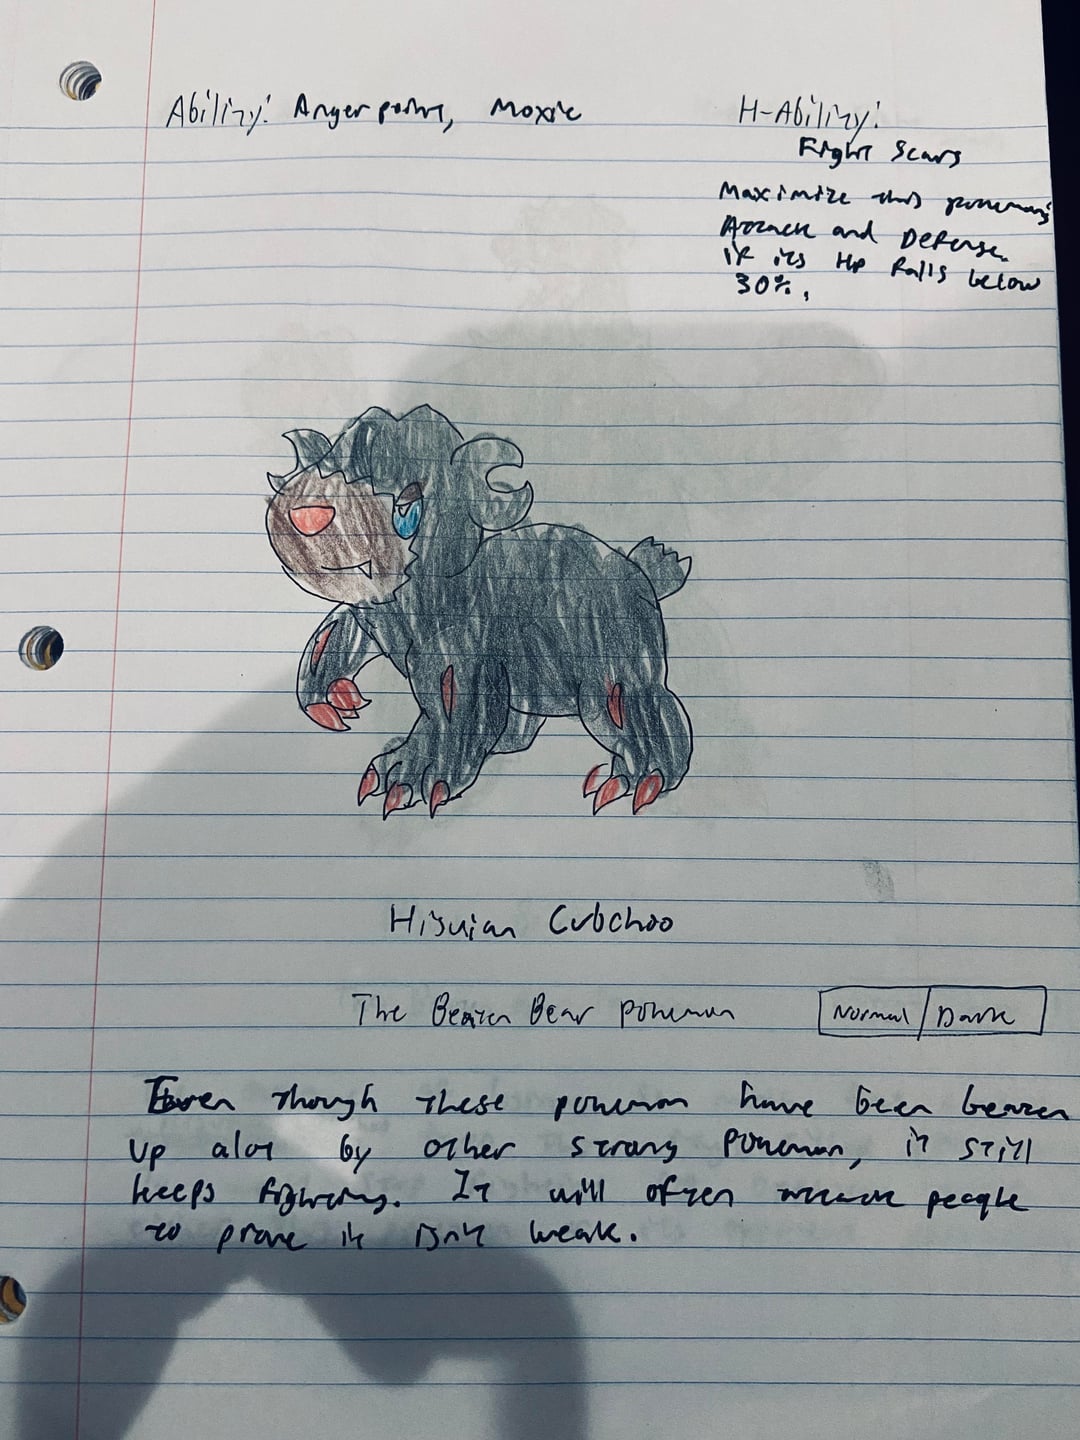 Ability: Anger point, Moxie
H-Ability:
Fight Scars
Maximize this pokemons
Attack and Defense.
if its Hp falls below
30%.
Hisuian Cubchoo
The Beaten Bear pokemon
Normal/Dark
Even though these pokemon have been beaten
up alot by other strong Pokemon, it still
keeps fighting. It will often attack people
to prove it isn't weak.